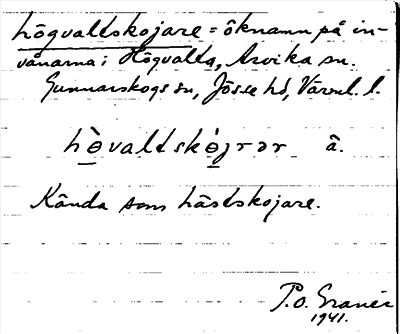 högvaltskojare = öknamn på in-
vånarna i Högvalta, Arvika sn.
Gunnarskogs sn, Jösse hd, Värml. l.
hɵ̀valtskɵ́jrər â.
Kända som hästskojare.
P.O. Graner
1941.